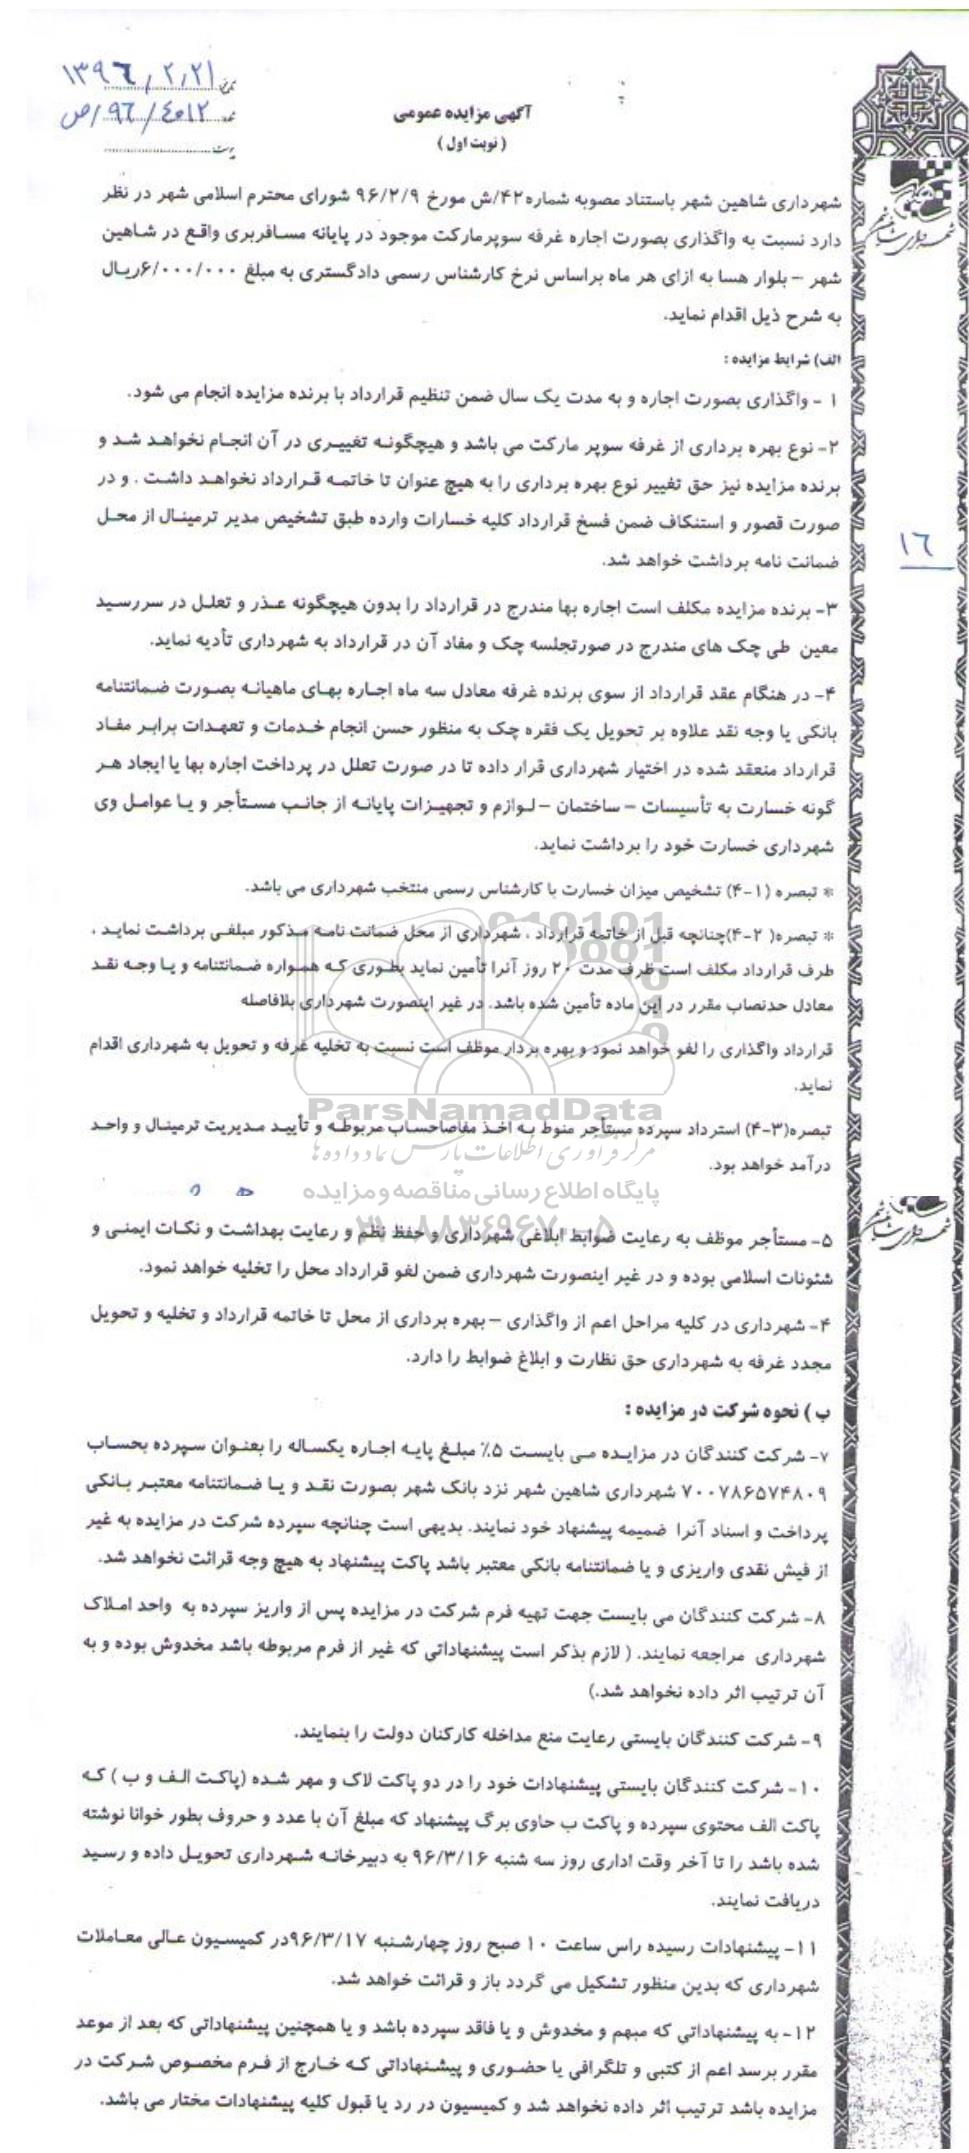 تاریخ: ۱۳۹۶/۲/۲۱
شماره: ۹۶/۴۰۱۲/ص
پیوست:
آگهی مزایده عمومی
( نوبت اول )
شهرداری شاهین شهر باستناد مصوبه شماره۴۲/ش مورخ ۹۶/۲/۹ شورای محترم اسلامی شهر در نظر
دارد نسبت به واگذاری بصورت اجاره غرفه سوپرمارکت موجود در پایانه مسافربری واقع در شاهین
شهر – بلوار هسا به ازای هر ماه براساس نرخ کارشناس رسمی دادگستری به مبلغ ۶/۰۰۰/۰۰۰ریال
به شرح ذیل اقدام نماید.
الف) شرایط مزایده :
۱ – واگذاری بصورت اجاره و به مدت یک سال ضمن تنظیم قرارداد با برنده مزایده انجام می شود.
۲- نوع بهره برداری از غرفه سوپر مارکت می باشد و هیچگونه تغییری در آن انجام نخواهد شد و
برنده مزایده نیز حق تغییر نوع بهره برداری را به هیچ عنوان تا خاتمه قرارداد نخواهد داشت . و در
صورت قصور و استنکاف ضمن فسخ قرارداد کلیه خسارات وارده طبق تشخیص مدیر ترمینال از محل
ضمانت نامه برداشت خواهد شد.
۱۶
۳- برنده مزایده مکلف است اجاره بها مندرج در قرارداد را بدون هیچگونه عذر و تعلل در سررسید
معین طی چک های مندرج در صورتجلسه چک و مفاد آن در قرارداد به شهرداری تأدیه نماید.
۴- در هنگام عقد قرارداد از سوی برنده غرفه معادل سه ماه اجاره بهای ماهیانه بصورت ضمانتنامه
بانکی یا وجه نقد علاوه بر تحویل یک فقره چک به منظور حسن انجام خدمات و تعهدات برابر مفاد
قرارداد منعقد شده در اختیار شهرداری قرار داده تا در صورت تعلل در پرداخت اجاره بها یا ایجاد هر
گونه خسارت به تأسیسات – ساختمان – لوازم و تجهیزات پایانه از جانب مستأجر و یا عوامل وی
شهرداری خسارت خود را برداشت نماید.
* تبصره (۱-۴) تشخیص میزان خسارت با کارشناس رسمی منتخب شهرداری می باشد.
* تبصره( ۲-۴)چنانچه قبل از خاتمه قرارداد ، شهرداری از محل ضمانت نامه مذکور مبلغی برداشت نماید ،
طرف قرارداد مکلف است ظرف مدت ۲۰ روز آنرا تأمین نماید بطوری که همواره ضمانتنامه و یا وجه نقد
معادل حدنصاب مقرر در این ماده تأمین شده باشد. در غیر اینصورت شهرداری بلافاصله
قرارداد واگذاری را لغو خواهد نمود و بهره بردار موظف است نسبت به تخلیه غرفه و تحویل به شهرداری اقدام
نماید.
ParsNamadData
تبصره(۳-۴) استرداد سپرده مستأجر منوط به اخذ مفاصاحساب مربوطه و تأیید مدیریت ترمینال و واحد
مرکز فرآوری اطلاعات پارس نماد داده ها
درآمد خواهد بود.
پایگاه اطلاع رسانی مناقصه و مزایده
۰۲۱-۸۸۳۴۹۶۷۰-۵
۵- مستأجر موظف به رعایت ضوابط ابلاغی شهرداری و حفظ نظم و رعایت بهداشت و نکات ایمنی و
شئونات اسلامی بوده و در غیر اینصورت شهرداری ضمن لغو قرارداد محل را تخلیه خواهد نمود.
۴- شهرداری در کلیه مراحل اعم از واگذاری – بهره برداری از محل تا خاتمه قرارداد و تخلیه و تحویل
مجدد غرفه به شهرداری حق نظارت و ابلاغ ضوابط را دارد.
ب ) نحوه شرکت در مزایده :
۷- شرکت کنندگان در مزایده می بایست ۵٪ مبلغ پایه اجاره یکساله را بعنوان سپرده بحساب
۷۰۰۷۸۶۵۷۴۸۰۹ شهرداری شاهین شهر نزد بانک شهر بصورت نقد و یا ضمانتنامه معتبر بانکی
پرداخت و اسناد آنرا ضمیمه پیشنهاد خود نمایند. بدیهی است چنانچه سپرده شرکت در مزایده به غیر
از فیش نقدی واریزی و یا ضمانتنامه بانکی معتبر باشد پاکت پیشنهاد به هیچ وجه قرائت نخواهد شد.
۸- شرکت کنندگان می بایست جهت تهیه فرم شرکت در مزایده پس از واریز سپرده به واحد املاک
شهرداری مراجعه نمایند. ( لازم بذکر است پیشنهاداتی که غیر از فرم مربوطه باشد مخدوش بوده و به
آن ترتیب اثر داده نخواهد شد.)
۹- شرکت کنندگان بایستی رعایت منع مداخله کارکنان دولت را بنمایند.
۱۰- شرکت کنندگان بایستی پیشنهادات خود را در دو پاکت لاک و مهر شده (پاکت الف و ب ) که
پاکت الف محتوی سپرده و پاکت ب حاوی برگ پیشنهاد که مبلغ آن با عدد و حروف بطور خوانا نوشته
شده باشد را تا آخر وقت اداری روز سه شنبه ۹۶/۳/۱۶ به دبیرخانه شهرداری تحویل داده و رسید
دریافت نمایند.
۱۱- پیشنهادات رسیده راس ساعت ۱۰ صبح روز چهارشنبه ۹۶/۳/۱۷در کمیسیون عالی معاملات
شهرداری که بدین منظور تشکیل می گردد باز و قرائت خواهد شد.
۱۲- به پیشنهاداتی که مبهم و مخدوش و یا فاقد سپرده باشد و یا همچنین پیشنهاداتی که بعد از موعد
مقرر برسد اعم از کتبی و تلگرافی یا حضوری و پیشنهاداتی که خارج از فرم مخصوص شرکت در
مزایده باشد ترتیب اثر داده نخواهد شد و کمیسیون در رد یا قبول کلیه پیشنهادات مختار می باشد.